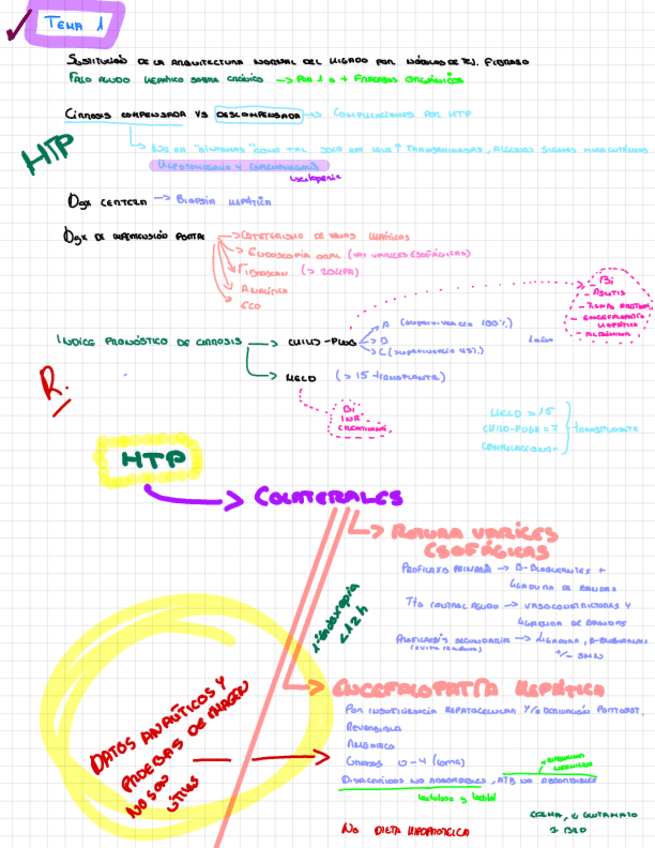 TEMA 1
SUSTITUCIÓN DE LA ARQUITECTURA NORMAL DEL HIGADO POR NÓDULOS DE TEJ. FIBROSO
FALLO AGUDO HEPÁTICO SOBRE CRÓNICO → POR 1 O + FRACASOS ORGÁNICOS
CIRROSIS COMPENSADA VS DESCOMPENSADA → COMPLICACIONES POR HTP
HTP
NO DA "SÍNTOMAS" COMO TAL SOLO HAY QUE ↑ TRANSAMINASAS, ALGUNOS SIGNOS MUCOCUTÁNEOS
HEPATOMEGALIA Y
leucopenia
DGX CERTEZA → BIOPSIA HEPÁTICA
DGX DE HIPERTENSIÓN PORTAL → CATETERISMO DE VENAS HEPÁTICAS
→ ENDOSCOPIA ORAL (VAI VARICES ESOFÁGICAS)
→ FIBROSCAN (> 20KPA)
→ ANALÍTICA
→ ECO
- Bi
- ASCITIS
- ENCEFALOPATÍA HEPÁTICA
- ALBÚMINA
INDICE PRONÓSTICO DE CIRROSIS → CHILD-PUGH
A (SUPERVIVENCIA 100%)
B
C (SUPERVIVENCIA 45%)
1 año
→ MELD (> 15 TRANSPLANTE)
R.
Bi
INR
CREATININA
MELD > 15
CHILD-PUGH = 7
COMPLICACIONES
TRANSPLANTE
HTP
→ COLATERALES
→ ROTURA VARICES
ESOFÁGICAS
PROFILAXIS PRIMARIA → B-BLOQUEANTES +
LIGADURA DE BANDAS
TTO CONTROL AGUDO → VASOCONSTRICTORES Y
LIGADURA DE BANDAS
PROFILAXIS SECUNDARIA → LIGADURA, B-BLOQUEANTES
(evita recidiva)
1º endoscopia
<12h
→ ENCEFALOPATÍA HEPÁTICA
POR INSUFICIENCIA HEPATOCELULAR Y/O DERIVACIÓN PORTOSIST.
REVERSIBLE
GRADOS 0-4 (COMA)
DISACÁRIDOS NO ABSORBIBLES, ATB NO ABSORBIBLES
lactulosa y lactitol
DATOS ANALÍTICOS Y
PRUEBAS DE IMAGEN
NO SON
ÚTILES
NO DIETA HIPOPROTEICA